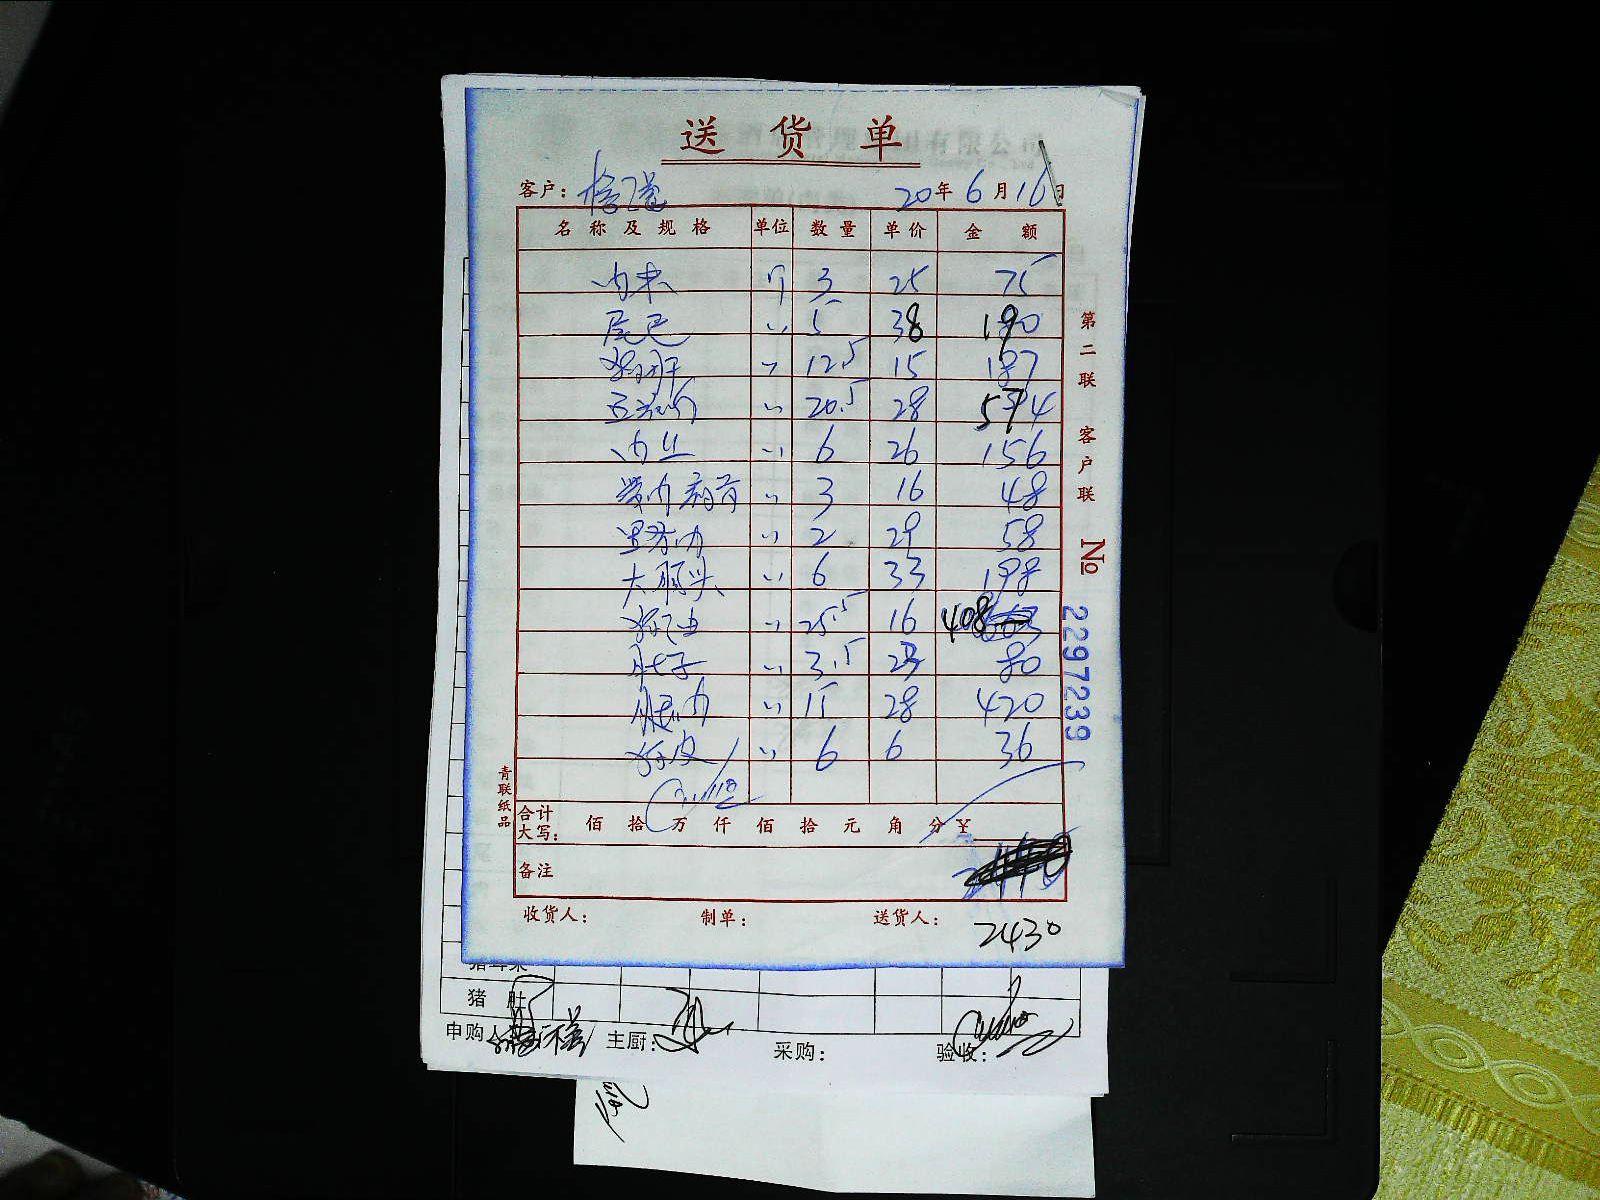 送货单
客户：
20年6月16日
名称及规格 单位 数量 单价 金额
肉末 斤 3 25 75
尾巴 〃 5 38 190
〃 12.5 15 187
五花肉 〃 20.5 28 574
肉丝 〃 6 26 156
〃 3 16 48
里脊肉 〃 2 29 58
大肠头 〃 6 33 198
猪油 〃 25.5 16 408
肚子 〃 3.5 23 80
腿肉 〃 15 28 420
猪皮 〃 6 6 36
合计大写： 佰 拾 万 仟 佰 拾 元 角 分 ¥
备注
收货人： 制单： 送货人：
2430
第二联 客户联
No 2297239
青联纸品
猪肚
申购人 主厨： 采购： 验收：